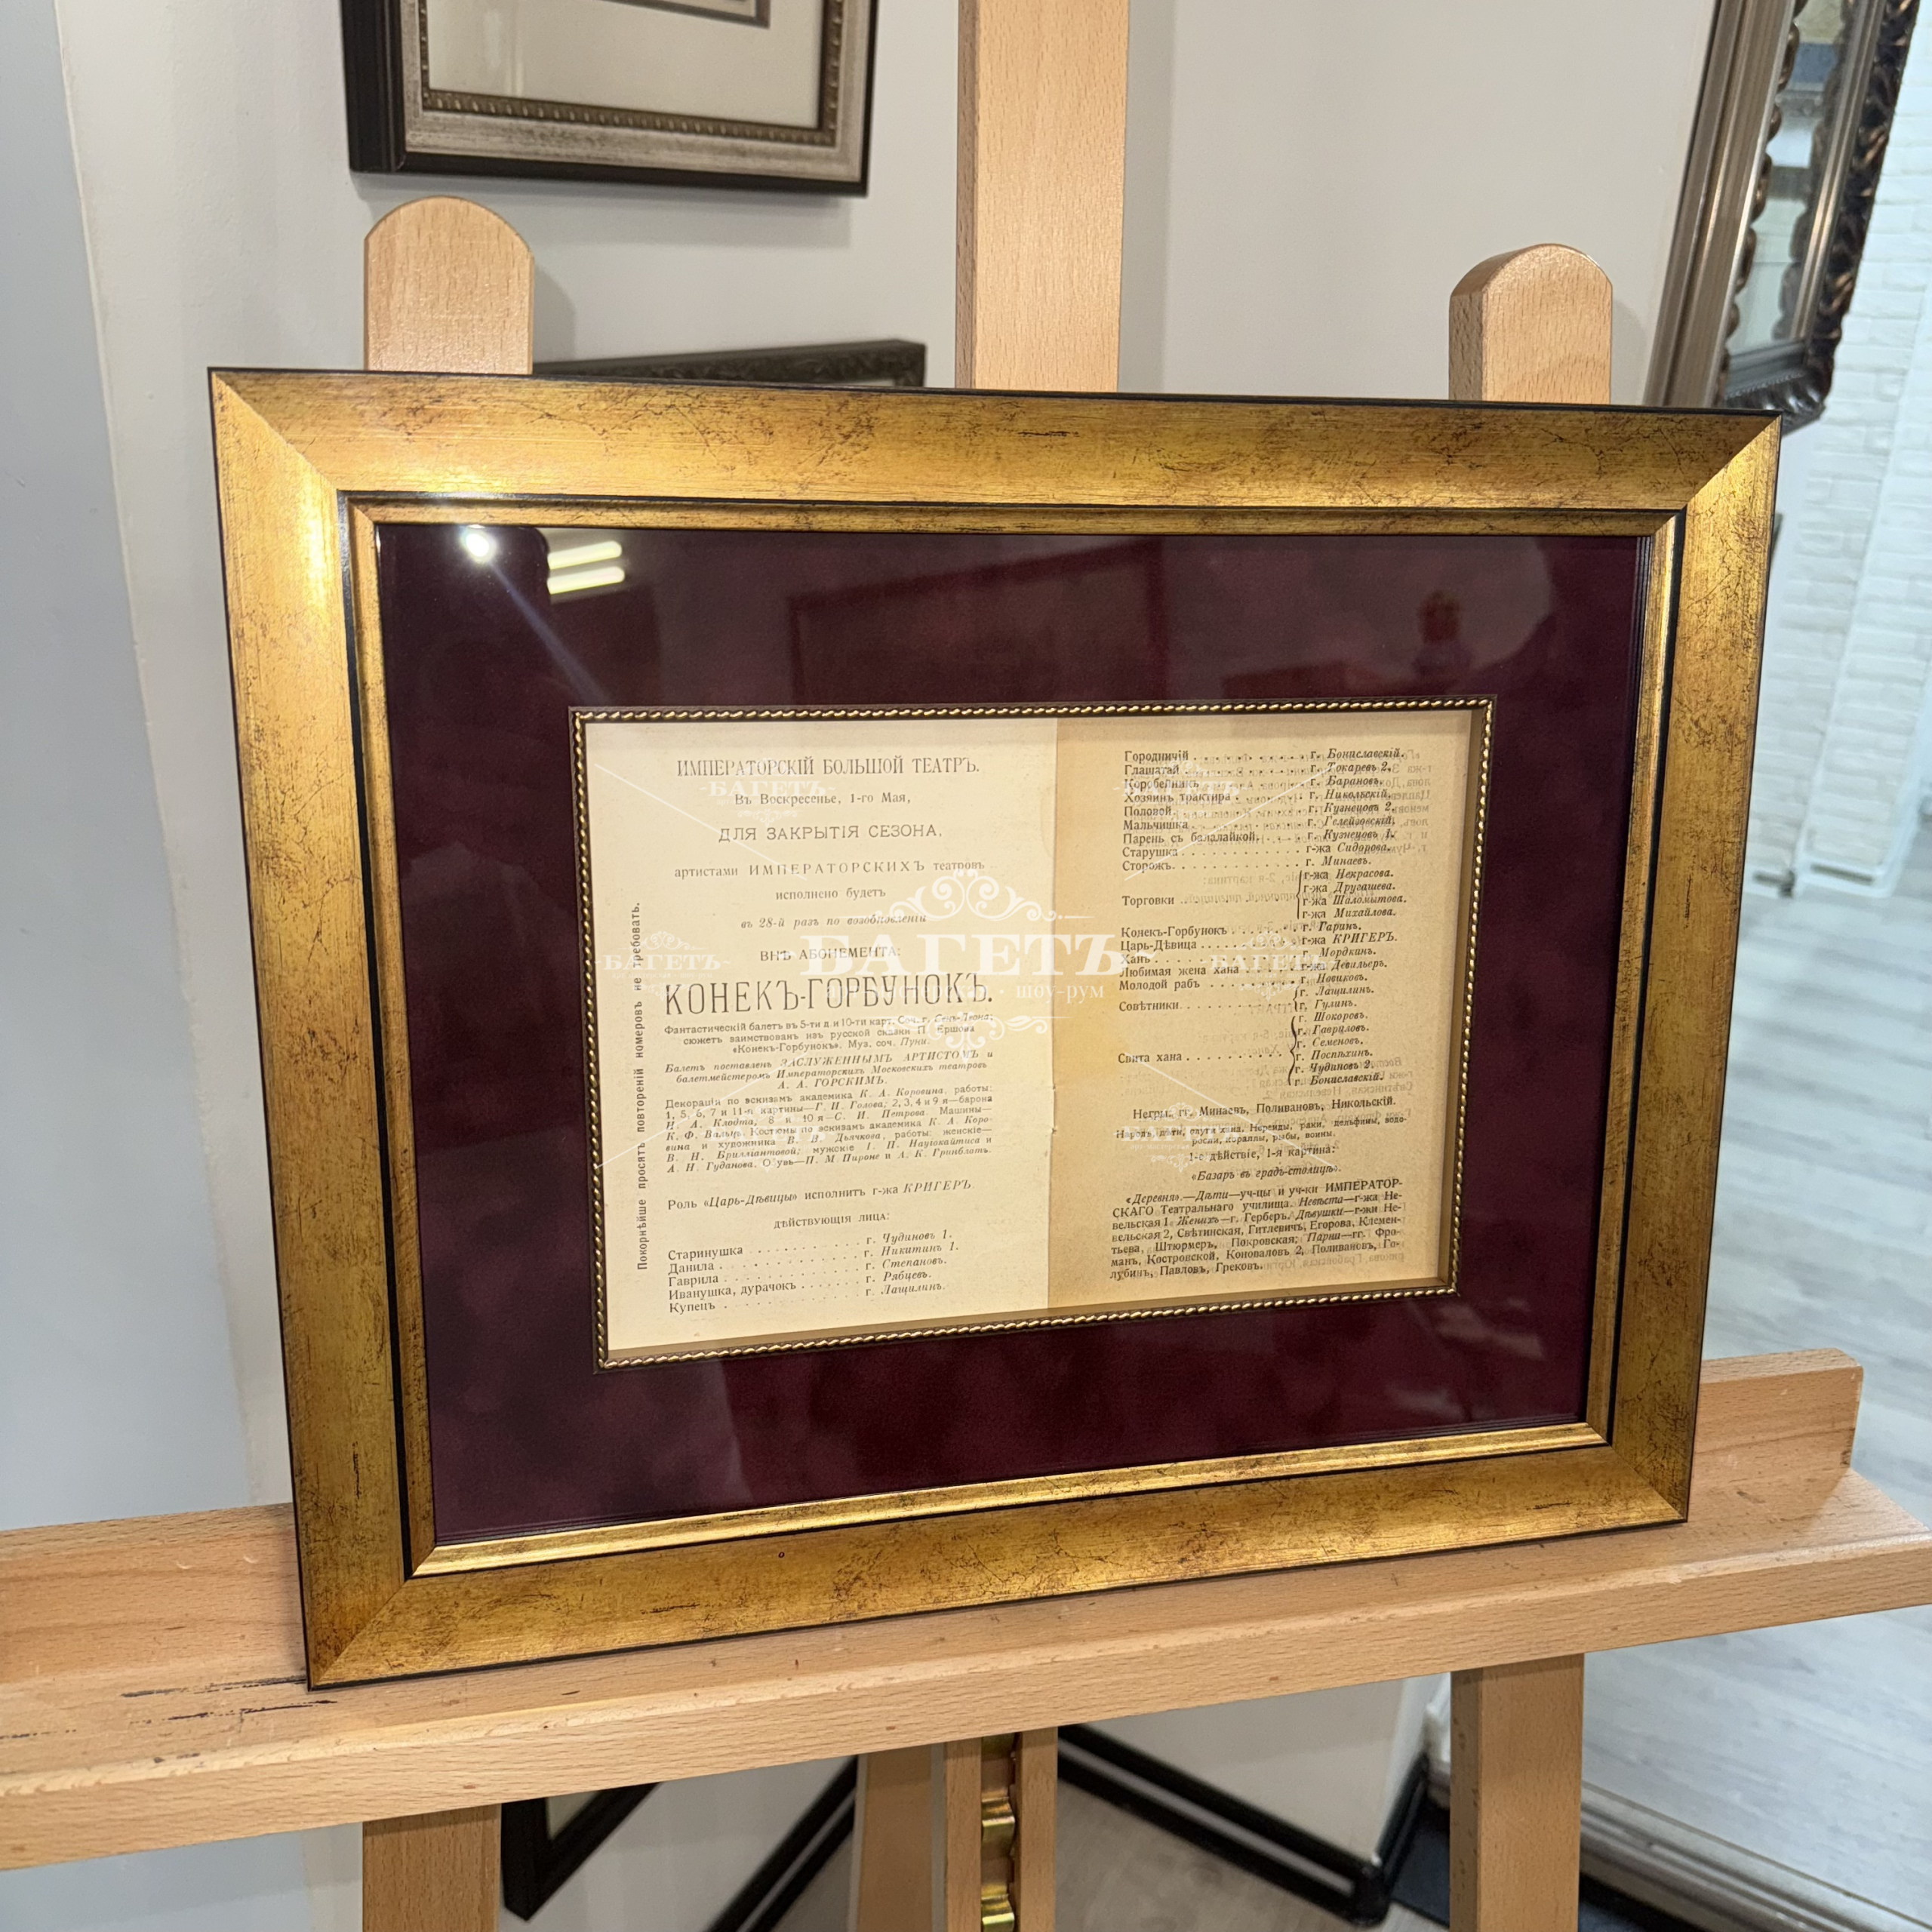 ИМПЕРАТОРСКІЙ БОЛЬШОЙ ТЕАТРЪ.
Въ Воскресенье, 1-го Мая,
ДЛЯ ЗАКРЫТІЯ СЕЗОНА,
артистами ИМПЕРАТОРСКИХЪ театровъ
исполнено будетъ
въ 28-й разъ по возобновленіи
ВНѢ АБОНЕМЕНТА:
КОНЕКЪ-ГОРБУНОКЪ.
Фантастическій балетъ въ 5-ти д. и 10-ти карт. Соч. г. Сенъ-Леона;
сюжетъ заимствованъ изъ русской сказки П. Ершова
«Конекъ-Горбунокъ». Муз. соч. Пуни.
Балетъ поставленъ ЗАСЛУЖЕННЫМЪ АРТИСТОМЪ и
балетмейстеромъ Императорскихъ Московскихъ театровъ
А. А. ГОРСКИМЪ.
Декораціи по эскизамъ академика К. А. Коровина, работы:
1, 5, 6, 7 и 11-я картины—Г. И. Голова; 2, 3, 4 и 9 я—барона
Н. А. Клодта; 8 и 10 я—С. И. Петрова. Машины—
К. Ф. Вальцъ. Костюмы по эскизамъ академика К. А. Коро-
вина и художника В. В. Дьячкова, работы: женскіе—
В. Н. Брилліантовой; мужскіе І. П. Наугокайтиса и
А. Н. Гуданова. Обувь—П. М. Пироне и А. К. Гринблатъ.
Роль «Царь-Дѣвицы» исполнитъ г-жа КРИГЕРЪ.
ДѢЙСТВУЮЩІЯ ЛИЦА:
Старинушка . . . . . . . . . г. Чудиновъ 1.
Данила . . . . . . . . . . . г. Никитинъ 1.
Гаврила . . . . . . . . . . . г. Степановъ.
Иванушка, дурачокъ . . . . . . г. Рябцевъ.
Купецъ . . . . . . . . . . . г. Лащилинъ.
Покорнѣйше просятъ повтореній номеровъ не требовать.
Городничій . . . . . . . . . г. Бониславскій.
Глашатай . . . . . . . . . . г. Токаревъ 2.
Коробейникъ . . . . . . . . г. Барановъ.
Хозяинъ трактира . . . . . . . г. Никольскій.
Половой . . . . . . . . . . г. Кузнецовъ 2.
Мальчишка . . . . . . . . . г. Гелейзовскій.
Парень съ балалайкой . . . . . г. Кузнецовъ 1.
Старушка . . . . . . . . . . г-жа Сидорова.
Сторожъ . . . . . . . . . . г. Минаевъ.
г-жа Некрасова.
г-жа Другашева.
Торговки . . . . . . . . . . г-жа Шаломытова.
г-жа Михайлова.
Конекъ-Горбунокъ . . . . . . . г. Гаринъ.
Царь-Дѣвица . . . . . . . . . г-жа КРИГЕРЪ.
Ханъ . . . . . . . . . . . . г. Мордкинъ.
Любимая жена хана . . . . . . г-жа Девильеръ.
Молодой рабъ . . . . . . . . г. Новиковъ.
г. Лащилинъ.
Совѣтники . . . . . . . . . . г. Гулинъ.
г. Шокоровъ.
г. Гавриловъ.
г. Семеновъ.
Свита хана . . . . . . . . . г. Поспѣхинъ.
г. Чудиновъ 2.
г. Бониславскій.
Негры, гг. Минаевъ, Поливановъ, Никольскій.
Народъ, дѣти, слуги хана. Нереиды, раки, дельфины, водо-
росли, кораллы, рыбы, воины.
1-е дѣйствіе, 1-я картина:
«Базаръ въ градѣ-столицѣ».
«Деревня».—Дѣти—уч-цы и уч-ки ИМПЕРАТОР-
СКАГО Театральнаго училища. Невѣста—г-жа Не-
вельская 1. Женихъ—г. Герберъ. Дѣвушки—г-жи Не-
вельская 2, Свѣтинская, Гитлевичъ, Егорова, Клемен-
тьева, Штюрмеръ, Покровская; Парни—гг. Фро-
манъ, Костровской, Коноваловъ 2, Поливановъ, Го-
лубинъ, Павловъ, Грековъ.
БАГЕТЪ
шоу-рум
БАГЕТЪ
БАГЕТЪ
БАГЕТЪ
БАГЕТЪ
БАГЕТЪ
БАГЕТЪ